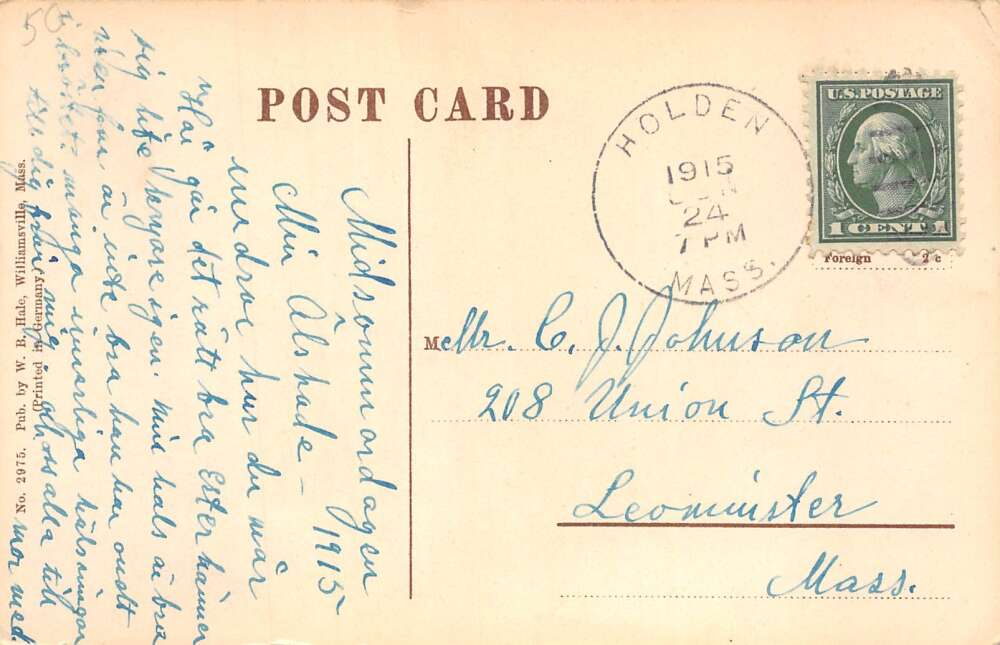 50
POST CARD
HOLDEN
1915
JUN
24
7 PM
MASS.
U.S. POSTAGE
1 CENT 1
Foreign 2 c
M
Mr. C. J. Johnson
208 Union St.
Leominster
Mass.
Midsommardagen
1915
Min Älskade –
undrar hur du mår
Här går det rätt bra Ester känner
sig lite bryare igen. min hals är bra
men finn är inte bra han har ondt
i bröstet många innerliga hälsningar
till dig från mig och alla till
mor med.
No. 2975. Pub. by W. B. Hale, Williamsville, Mass.
(Printed in Germany)